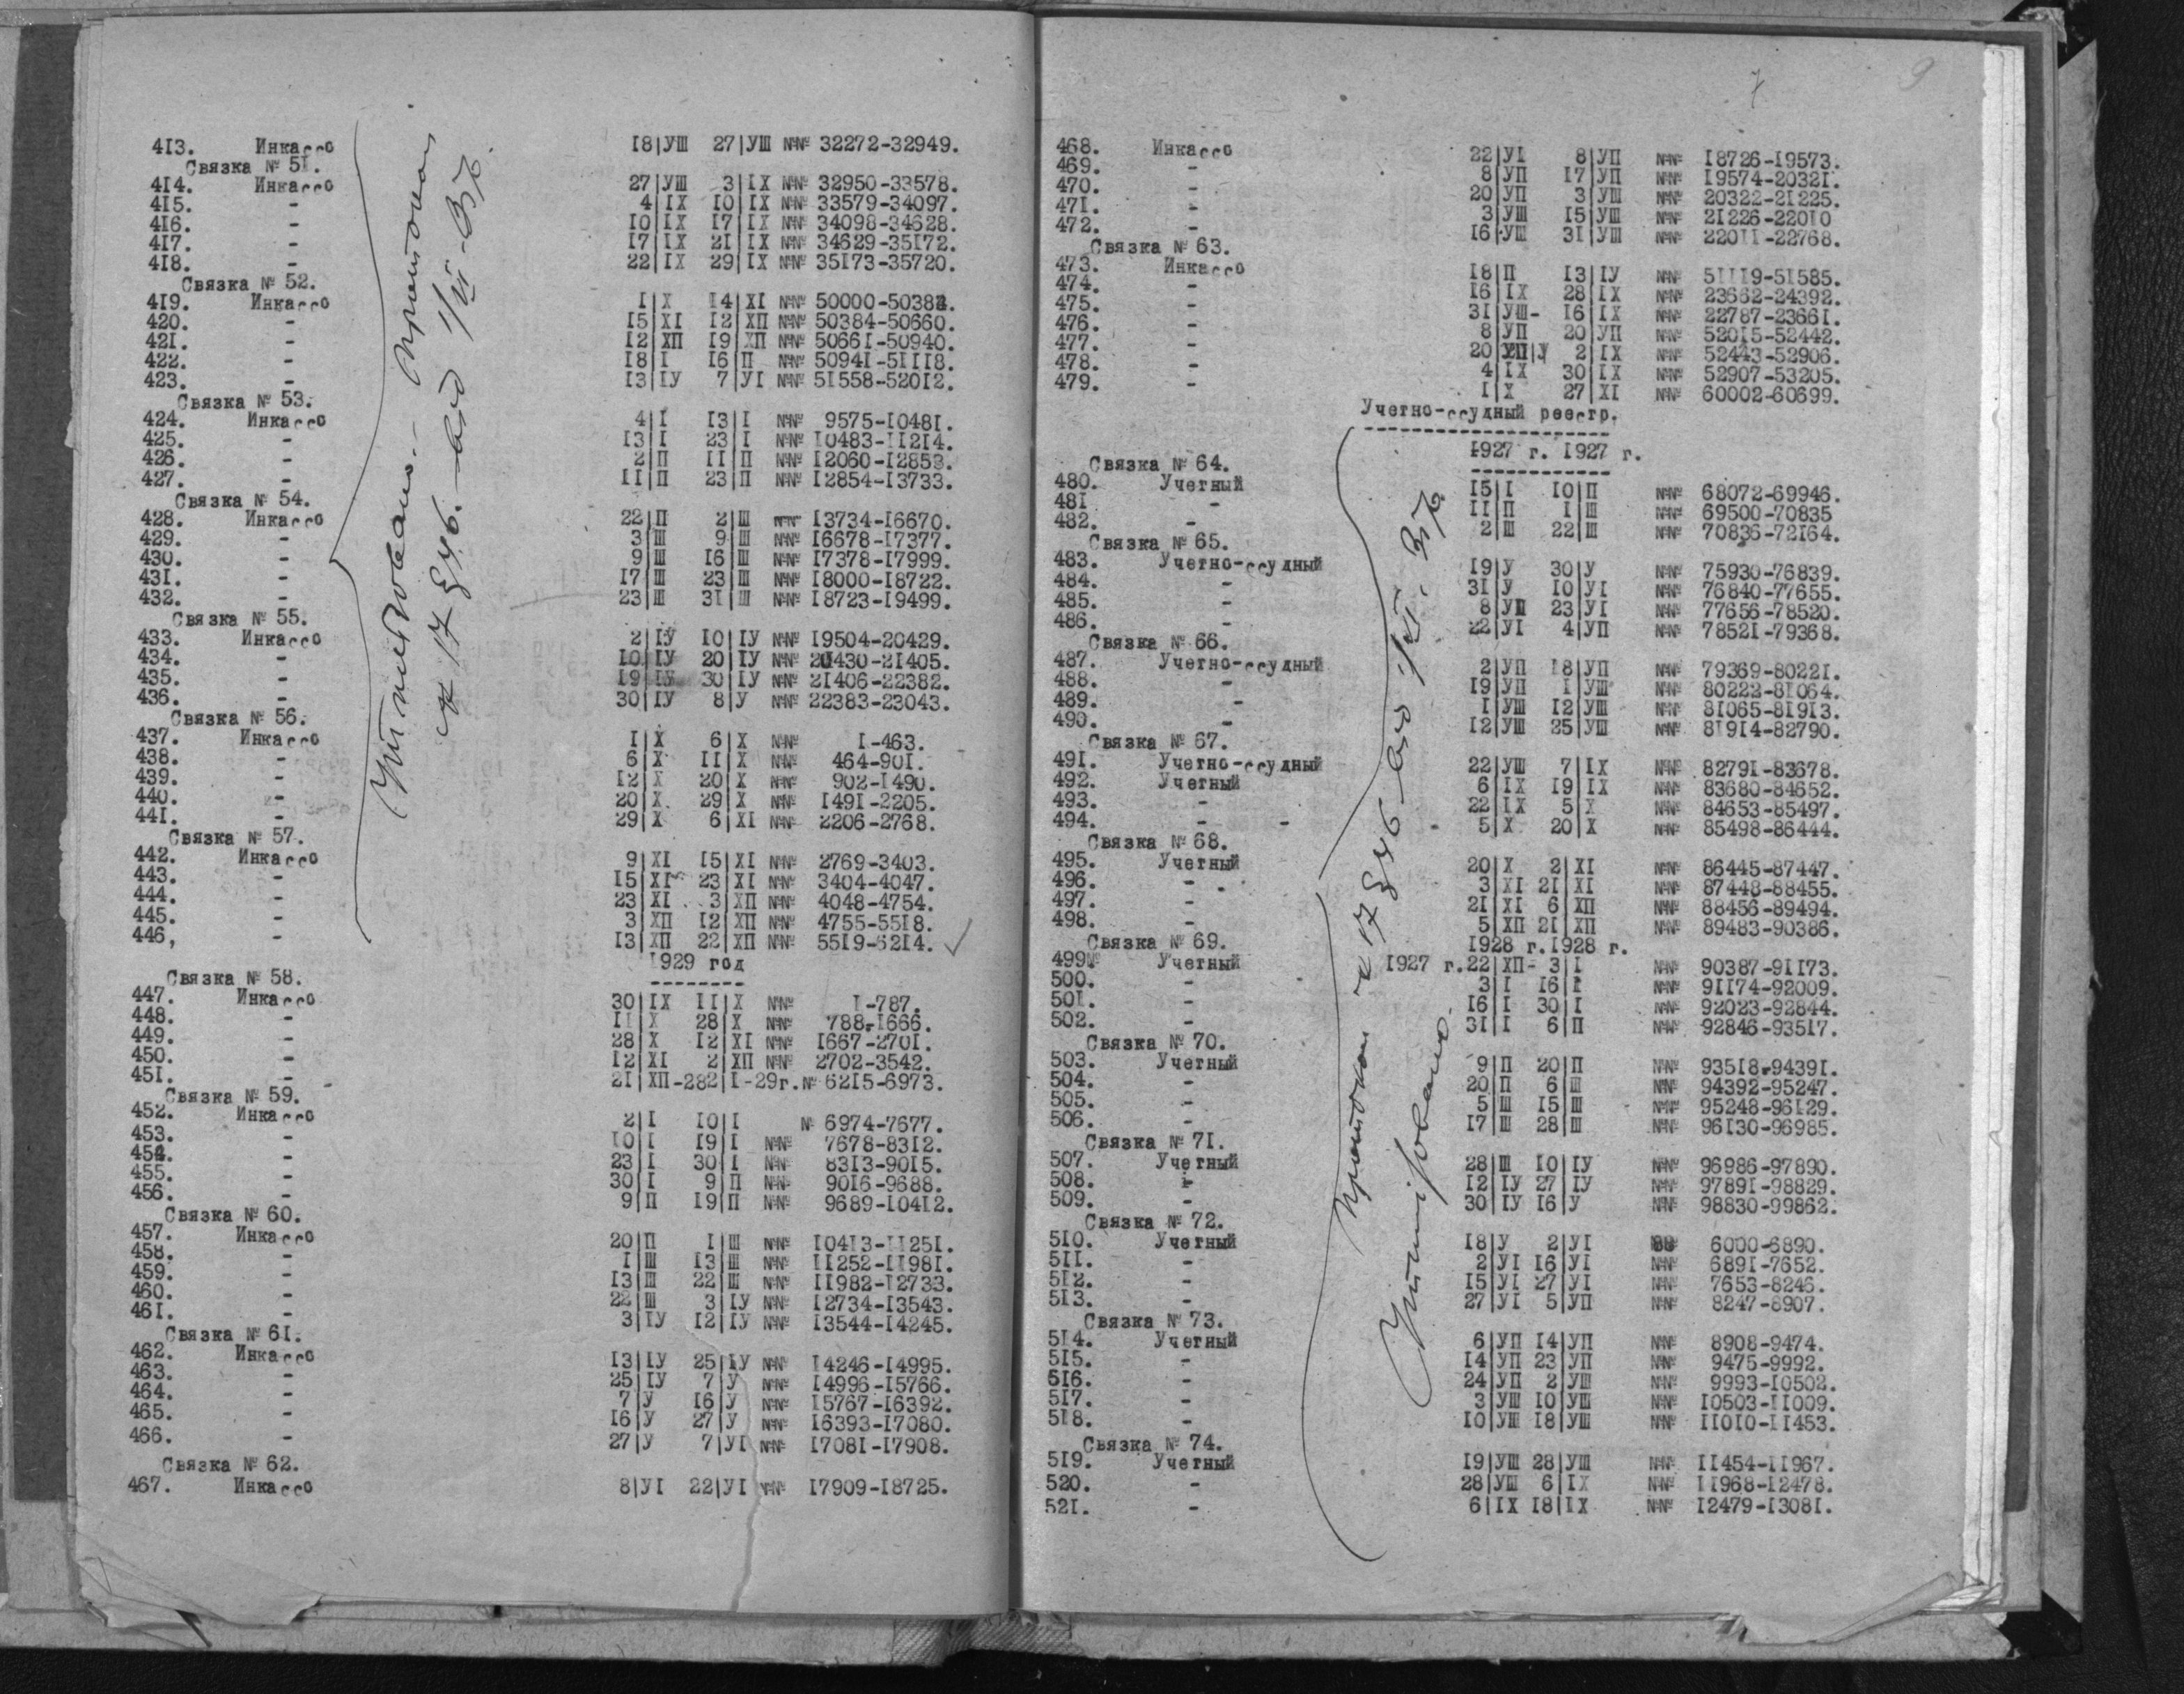 413. Инкассо 18|УШ 27|УШ №№ 32272-32949.
Связка № 51.
414. Инкассо 27|УШ 3|IX №№ 32950-33578.
415. - 4|IX 10|IX №№ 33579-34097.
416. - 10|IX 17|IX №№ 34098-34628.
417. - 17|IX 21|IX №№ 34629-35172.
418. - 22|IX 29|IX №№ 35173-35720.
Связка № 52.
419. Инкассо I|X 14|XI №№ 50000-50383.
420. - 15|XI 12|XП №№ 50384-50660.
421. - 12|XП 19|XП №№ 50661-50940.
422. - 18|I 16|П №№ 50941-51118.
423. - 13|IУ 7|УI №№ 51558-52012.
Связка № 53.
424. Инкассо 4|I 13|I №№ 9575-10481.
425. - 13|I 23|I №№ 10483-11214.
426. - 2|П 11|П №№ 12060-12853.
427. - 11|П 23|П №№ 12854-13733.
Связка № 54.
428. Инкассо 22|П 2|Ш №№ 13734-16670.
429. - 3|Ш 9|Ш №№ 16678-17377.
430. - 9|Ш 16|Ш №№ 17378-17999.
431. - 17|Ш 23|Ш №№ 18000-18722.
432. - 23|Ш 31|Ш №№ 18723-19499.
Связка № 55.
433. Инкассо 2|IУ 10|IУ №№ 19504-20429.
434. - 10|IУ 20|IУ №№ 20430-21405.
435. - 19|IУ 30|IУ №№ 21406-22382.
436. - 30|IУ 8|У №№ 22383-23043.
Связка № 56.
437. Инкассо I|X 6|X №№ I-463.
438. - 6|X 11|X №№ 464-901.
439. - 12|X 20|X №№ 902-1490.
440. - 20|X 29|X №№ 1491-2205.
441. - 29|X 6|XI №№ 2206-2768.
Связка № 57.
442. Инкассо 9|XI 15|XI №№ 2769-3403.
443. - 15|XI 23|XI №№ 3404-4047.
444. - 23|XI 3|XП №№ 4048-4754.
445. - 3|XП 12|XП №№ 4755-5518.
446, - 13|XП 22|XП №№ 5519-6214.
1929 год
Связка № 58.
447. Инкассо 30|IX 11|X №№ I-787.
448. - 11|X 28|X №№ 788-1666.
449. - 28|X 12|XI №№ 1667-2701.
450. - 12|XI 2|XП №№ 2702-3542.
451. - 21|XП-282|I-29г.№ 6215-6973.
Связка № 59.
452. Инкассо 2|I 10|I № 6974-7677.
453. - 10|I 19|I №№ 7678-8312.
454. - 23|I 30|I №№ 8313-9015.
455. - 30|I 9|П №№ 9016-9688.
456. - 9|П 19|П №№ 9689-10412.
Связка № 60.
457. Инкассо 20|П I|Ш №№ 10413-11251.
458. - I|Ш 13|Ш №№ 11252-11981.
459. - 13|Ш 22|Ш №№ 11982-12733.
460. - 22|Ш 3|IУ №№ 12734-13543.
461. - 3|IУ 12|IУ №№ 13544-14245.
Связка № 61.
462. Инкассо 13|IУ 25|IУ №№ 14246-14995.
463. - 25|IУ 7|У №№ 14996-15766.
464. - 7|У 16|У №№ 15767-16392.
465. - 16|У 27|У №№ 16393-17080.
466. - 27|У 7|УI №№ 17081-17908.
Связка № 62.
467. Инкассо 8|УI 22|УI №№ 17909-18725.
Утилизовано - Протокол
№ 17 § 46. - от 1/VI-37г.
7 9
468. Инкассо 22|УI 8|УП №№ 18726-19573.
469. - 8|УП 17|УП №№ 19574-20321.
470. - 20|УП 3|УШ №№ 20322-21225.
471. - 3|УШ 15|УШ №№ 21226-22010
472. - 16|УШ 31|УШ №№ 22011-22768.
Связка № 63.
473. Инкассо 18|П 13|IУ №№ 51119-51585.
474. - 16|IX 28|IX №№ 23662-24392.
475. - 31|УШ- 16|IX №№ 22787-23661.
476. - 8|УП 20|УП №№ 52015-52442.
477. - 20|УП|У 2|IX №№ 52443-52906.
478. - 4|IX 30|IX №№ 52907-53205.
479. - I|X 27|XI №№ 60002-60699.
Учетно-ссудный реестр.
1927 г. 1927 г.
Связка № 64.
480. Учетный 15|I 10|П №№ 68072-69946.
481 - 11|П I|Ш №№ 69500-70835
482. - 2|Ш 22|Ш №№ 70836-72164.
Связка № 65.
483. Учетно-ссудный 19|У 30|У №№ 75930-76839.
484. - 31|У 10|УI №№ 76840-77655.
485. - 8|УП 23|УI №№ 77656-78520.
486. - 22|УI 4|УП №№ 78521-79368.
Связка № 66.
487. Учетно-ссудный 2|УП 18|УП №№ 79369-80221.
488. - 19|УП I|УШ №№ 80222-81064.
489. - I|УШ 12|УШ №№ 81065-81913.
490. - 12|УШ 25|УШ №№ 81914-82790.
Связка № 67.
491. Учетно-ссудный 22|УШ 7|IX №№ 82791-83678.
492. Учетный 6|IX 19|IX №№ 83680-84652.
493. - 22|IX 5|X №№ 84653-85497.
494. - - 5|X 20|X №№ 85498-86444.
Связка № 68.
495. Учетный 20|X 2|XI №№ 86445-87447.
496. - 3|XI 21|XI №№ 87448-88455.
497. - 21|XI 6|XП №№ 88456-89494.
498. - 5|XП 21|XП №№ 89483-90386.
Связка № 69. 1928 г.1928 г.
499№ Учетный 1927 г.22|XП- 3|I №№ 90387-91173.
500. - 3|I 16|I №№ 91174-92009.
501. - 16|I 30|I №№ 92023-92844.
502. - 31|I 6|П №№ 92846-93517.
Связка № 70.
503. Учетный 9|П 20|П №№ 93518-94391.
504. - 20|П 6|Ш №№ 94392-95247.
505. - 5|Ш 15|Ш №№ 95248-96129.
506. - 17|Ш 28|Ш №№ 96130-96985.
Связка № 71.
507. Учетный 28|Ш 10|IУ №№ 96986-97890.
508. - 12|IУ 27|IУ №№ 97891-98829.
509. - 30|IУ 16|У №№ 98830-99862.
Связка № 72.
510. Учетный 18|У 2|УI 6000-6890.
511. - 2|УI 16|УI №№ 6891-7652.
512. - 15|УI 27|УI №№ 7653-8246.
513. - 27|УI 5|УП №№ 8247-8907.
Связка № 73.
514. Учетный 6|УП 14|УП №№ 8908-9474.
515. - 14|УП 23|УП №№ 9475-9992.
516. - 24|УП 2|УШ №№ 9993-10502.
517. - 3|УШ 10|УШ №№ 10503-11009.
518. - 10|УШ 18|УШ №№ 11010-11453.
Связка № 74.
519. Учетный 19|УШ 28|УШ №№ 11454-11967.
520. - 28|УШ 6|IX №№ 11968-12478.
521. - 6|IX 18|IX №№ 12479-13081.
Протокол № 17 § 46 от 1/VI-37г.
Утилизовано.